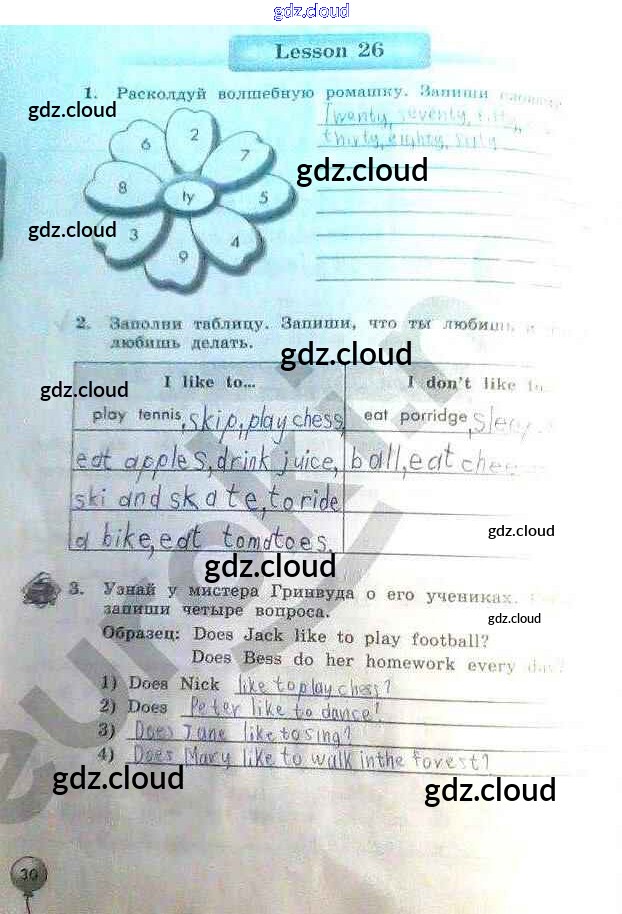 gdz.cloud
Lesson 26
1. Расколдуй волшебную ромашку. Запиши
gdz.cloud
Twenty, seventy, fifty,
thirty, eighty, sixty
6 2 7
gdz.cloud
8 ty 5
gdz.cloud
3 9 4
2. Заполни таблицу. Запиши, что ты любишь и
любишь делать.
gdz.cloud
I like to... I don't like to
gdz.cloud
play tennis, skip, play chess, eat porridge, sleep
eat apples, drink juice, ball, eat
ski and skate, to ride
a bike, eat tomatoes.
gdz.cloud
gdz.cloud
3. Узнай у мистера Гринвуда о его учениках.
запиши четыре вопроса.
gdz.cloud
Образец: Does Jack like to play football?
Does Bess do her homework every day?
1) Does Nick like to play chess?
2) Does Peter like to dance?
3) Does Jane like to sing?
4) Does Mary like to walk in the forest?
gdz.cloud
gdz.cloud
euroki
30